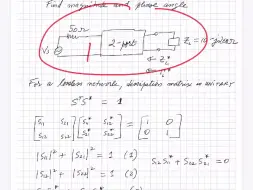 Find magnitude and phase angle
50Ω
Vs
2-port
Z₂*
For a lossless network, dissipation matrix is unitary
SᵀS* = 1
[S₁₁ S₂₁ / S₁₂ S₂₂] [S₁₁* S₁₂* / S₂₁* S₂₂*] = [1 0 / 0 1]
|S₁₁|² + |S₂₁|² = 1 (1)
S₁₂S₁₁* + S₂₂S₂₁* = 0
|S₁₂|² + |S₂₂|² = 1 (2)